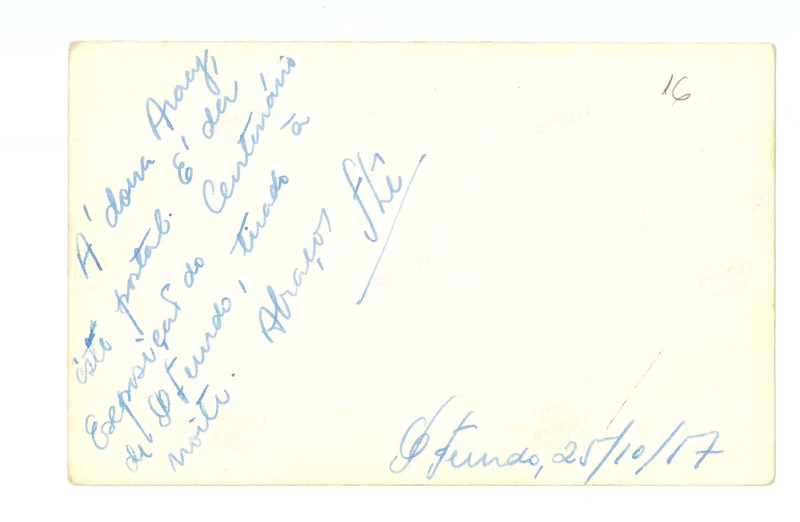 16
À dona Aracy,
êste postal. É da
Exposição do Centenário
de P Fundo, tirado à
noite. Abraços
P Fundo, 25/10/57